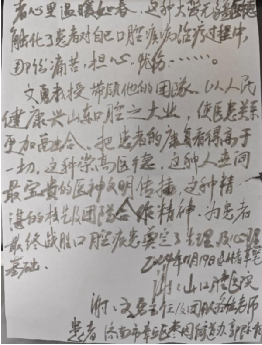 者心里温暖如春……这种大爱无
融化了患者对自己口腔疾病治疗过程中,
的痛苦、担心、忧伤……。
文勇教授带领他的团队,以人民
健康兴山东口腔之大业,使医患关系
更加融合,把患者的康复看得高于
一切,这种崇高医德,这种人世间
最宝贵的医神文明传播,这种精
湛的技能及团队合作精神,为患者
最终战胜口腔疾患奠定了生理及心理
基础。
2024年1月19日
山东口腔医院
附:文勇主任及团队老师
患者 济南市